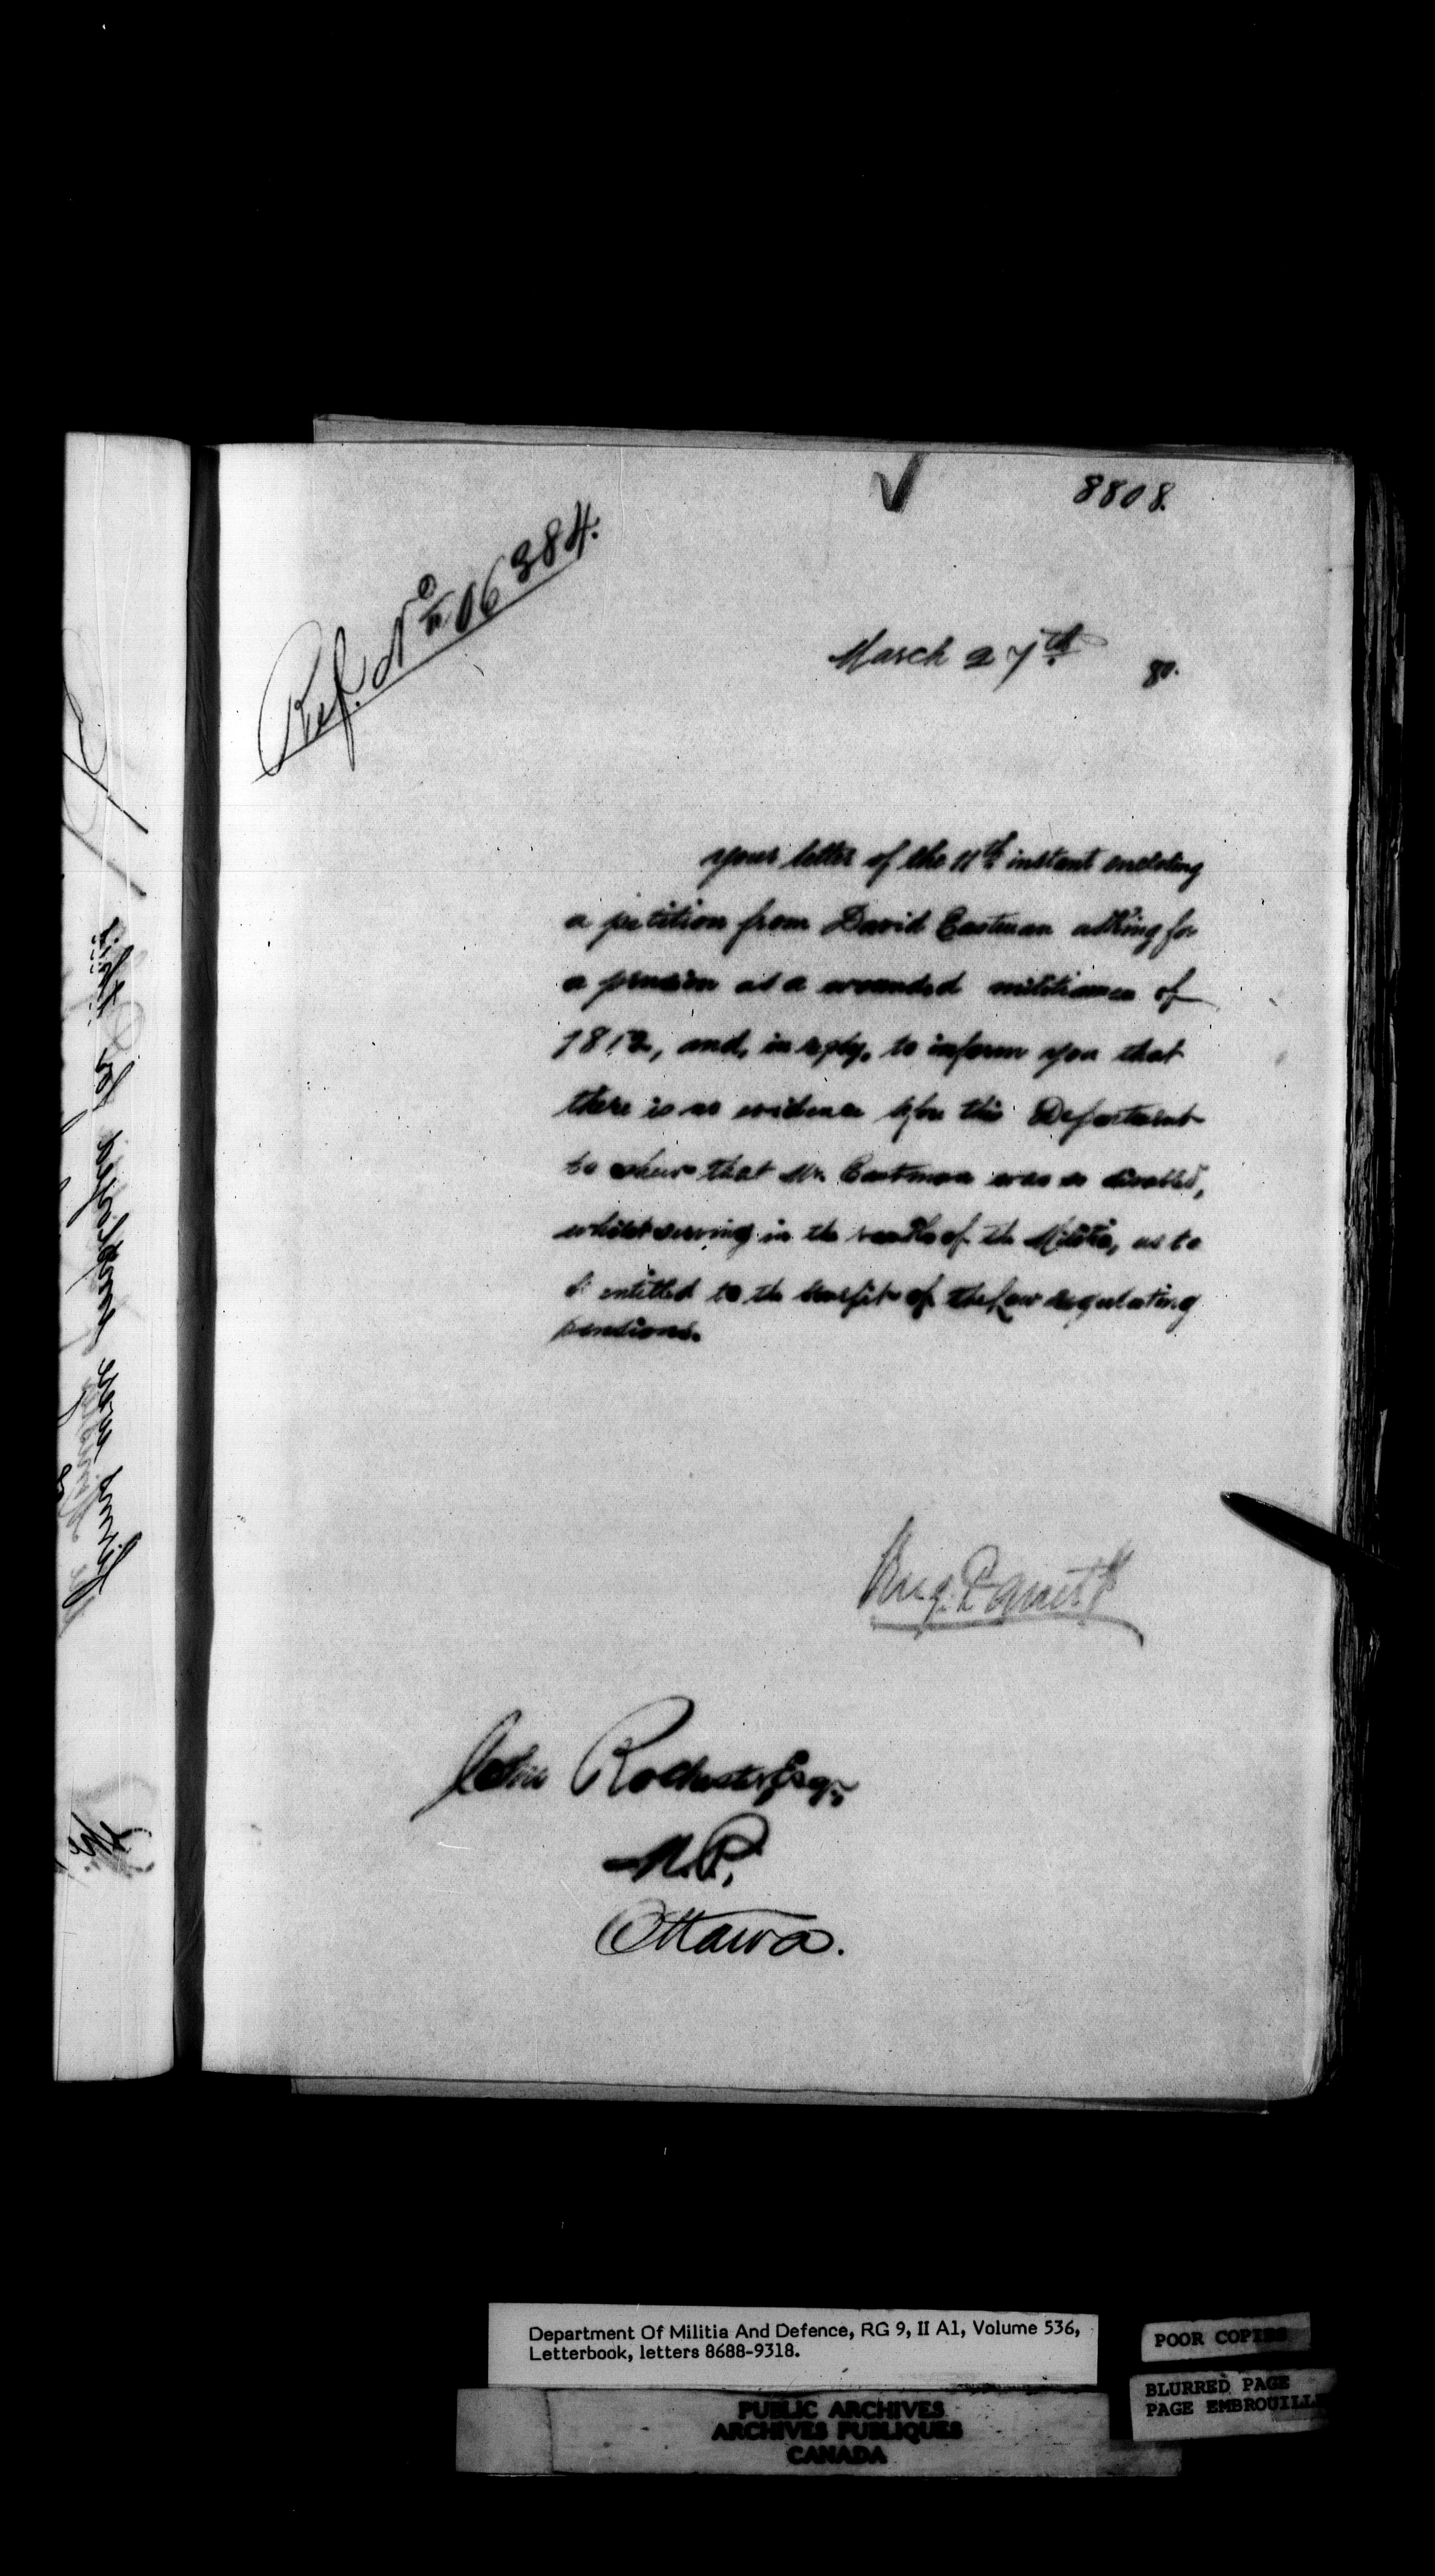 8808.
Ref. No. 06384.
March 27th 80.
your letter of the 11th instant enclosing
a petition from David Eastman asking for
a pension as a wounded militiaman of
1812, and, in reply, to inform you that
there is no evidence before this Department
to shew that Mr. Eastman was so disabled,
whilst serving in the ranks of the Militia, as to
be entitled to the benefit of the law regulating
pensions.
John Rochester Esqr,
M.P.,
Ottawa.
Department Of Militia And Defence, RG 9, II A1, Volume 536,
Letterbook, letters 8688-9318.
POOR COPIES
BLURRED PAGE
PAGE EMBROUILL
PUBLIC ARCHIVES
ARCHIVES PUBLIQUES
CANADA